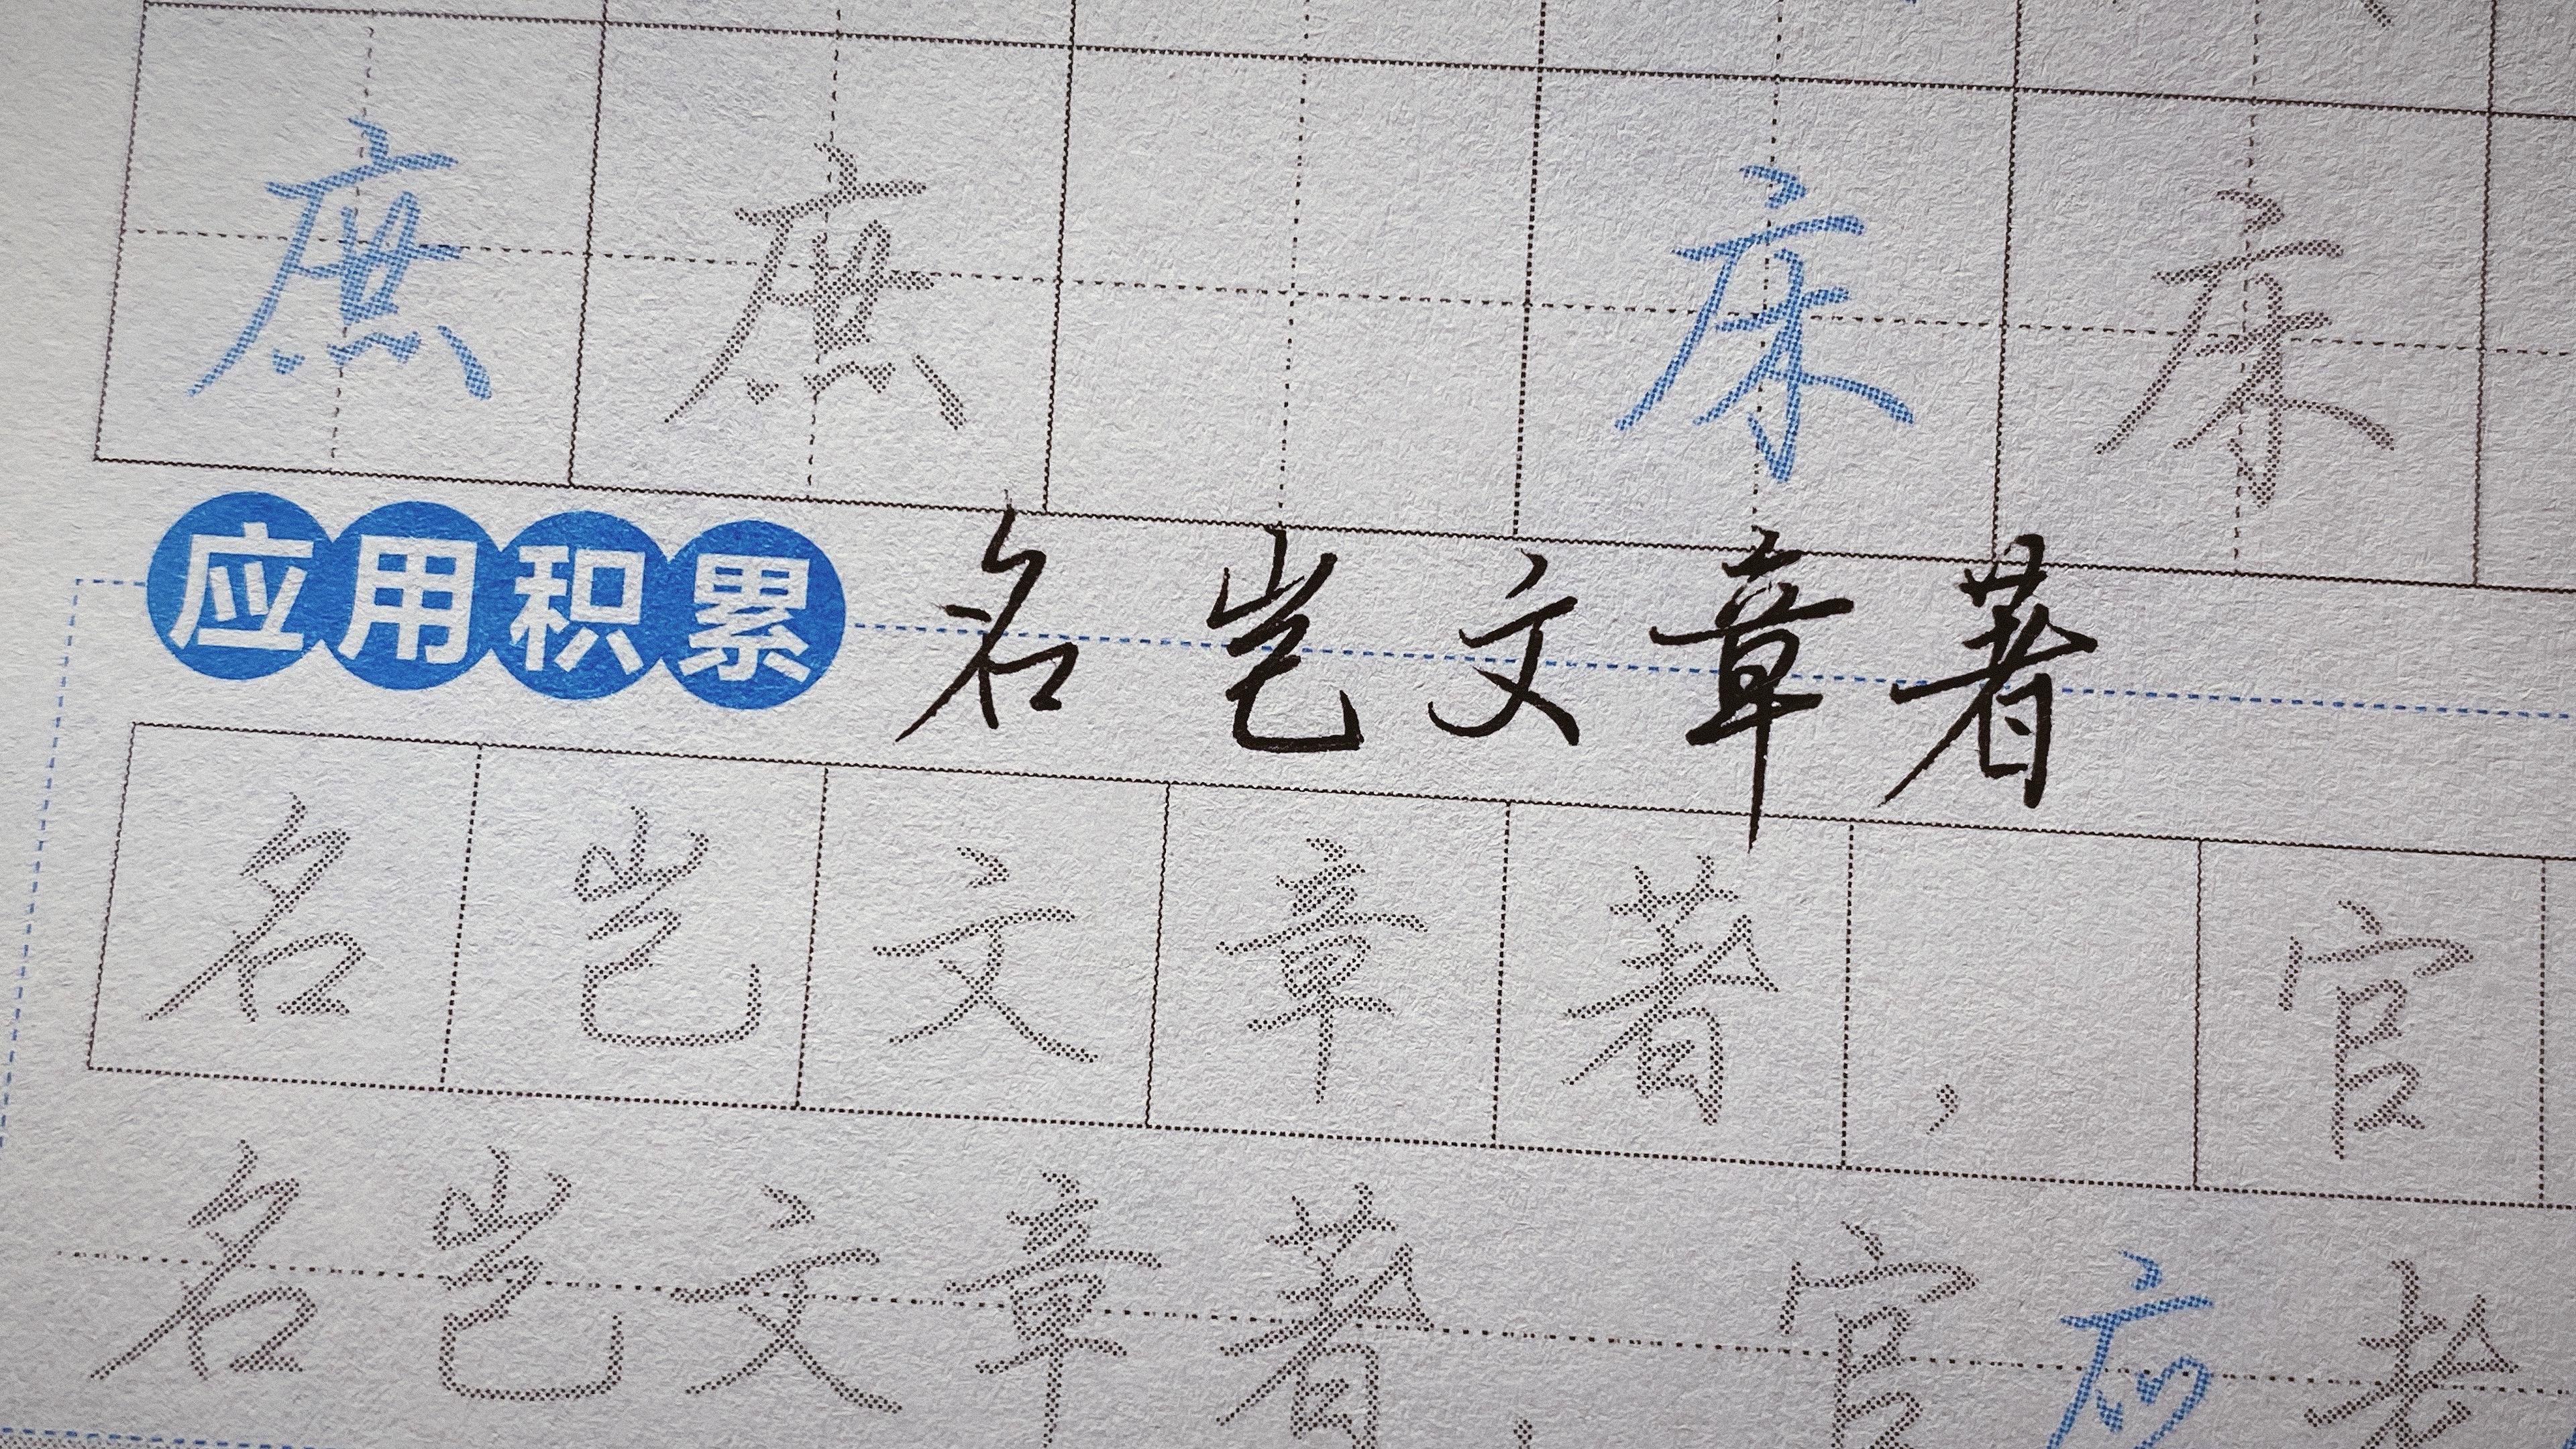 庶 庶 康 康
应用积累 名岂文章著
名岂文章著，官
名岂文章著，官应老